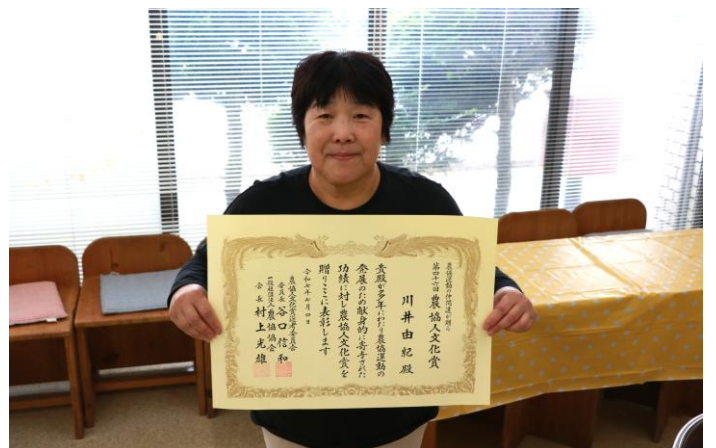 農協運動の仲間達が贈る
第四十六回 農協人文化賞
川井由紀 殿
貴殿が多年にわたり農協運動の
発展のため献身的に寄与された
功績に対し農協人文化賞を
贈りここに表彰します
令和七年七月四日
農協人文化賞選考委員会
委員長 谷口信和
一般社団法人 農協協会
会長 村上光雄